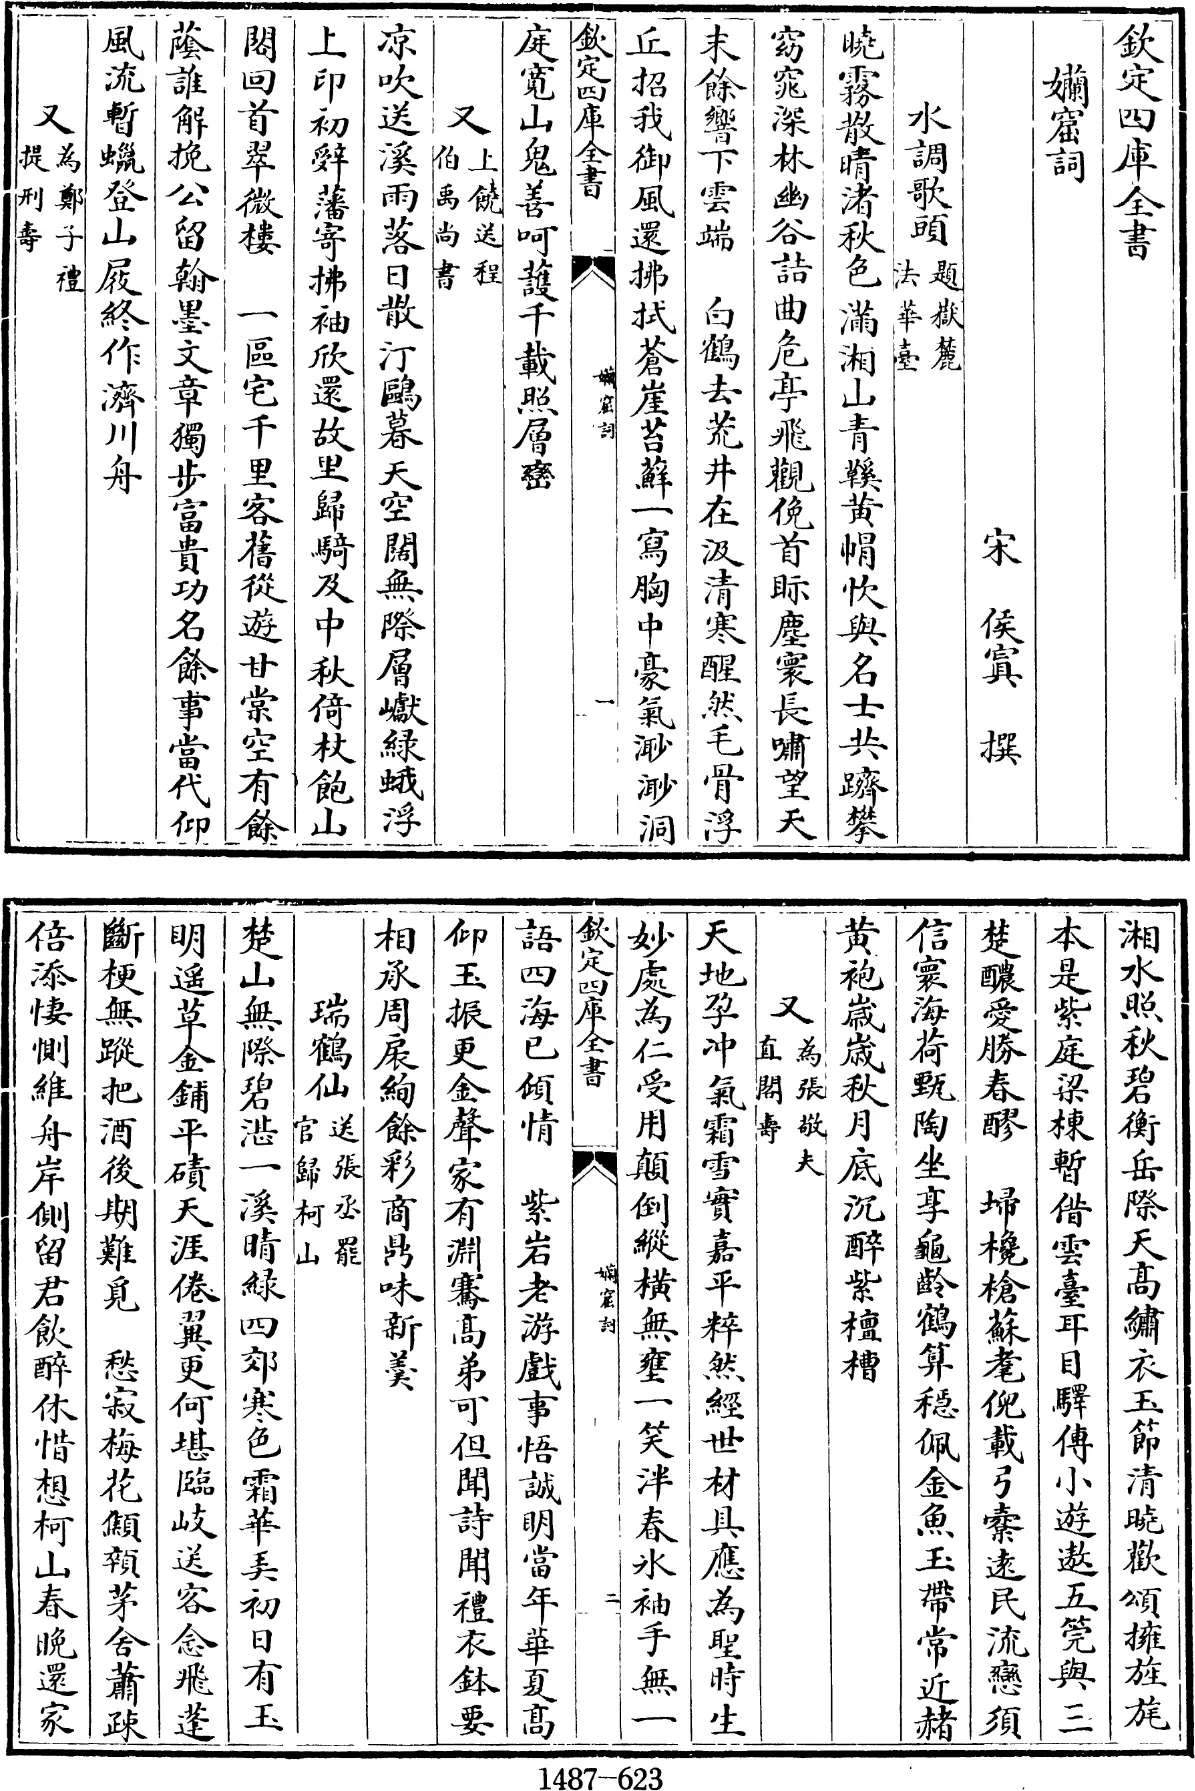 欽定四庫全書
嬾窟詞
宋 侯寘 撰
水調歌頭 題嶽麓法華臺
曉霧散晴渚秋色滿湘山青鞵黃帽忺與名士共躋攀
窈窕深林幽谷詰曲危亭飛觀俛首眎塵寰長嘯望天
末餘響下雲端 白鶴去荒井在汲清寒醒然毛骨浮
丘招我御風還拂拭蒼崖苔蘚一寫胸中豪氣渺渺洞
欽定四庫全書 嬾窟詞 一
庭寬山鬼善呵護千載照層巒
又 上饒送程伯禹尚書
凉吹送溪雨落日散汀鷗暮天空闊無際層巘綠蛾浮
上印初辭藩寄拂袖欣還故里歸騎及中秋倚杖飽山
閣回首翠微樓 一區宅千里客舊從遊甘棠空有餘
蔭誰解挽公留翰墨文章獨步富貴功名餘事當代仰
風流暫蠟登山屐終作濟川舟
又 為鄭子禮提刑壽
湘水照秋碧衡岳際天高繡衣玉節清曉歡頌擁旌旄
本是紫庭梁棟暫借雲臺耳目驛傳小遊遨五筦與三
楚醲愛勝春醪 埽欃槍蘇耄倪載弓櫜遠民流戀須
信寰海荷甄陶坐享龜齡鶴算穩佩金魚玉帶常近赭
黃袍歲歲秋月底沉醉紫檀槽
又 為張敬夫直閣壽
天地孕冲氣霜雪實嘉平粹然經世材具應為聖時生
妙處為仁受用顛倒縱橫無壅一笑泮春氷袖手無一
欽定四庫全書 嬾窟詞 二
語四海已傾情 紫岩老游戲事悟誠明當年華夏高
仰玉振更金聲家有淵騫高弟可但聞詩聞禮衣鉢要
相承周扆絢餘彩商鼎味新羹
瑞鶴仙 送張丞罷官歸柯山
楚山無際碧湛一溪晴綠四郊寒色霜華弄初日有玉
明遥草金鋪平磧天涯倦翼更何堪臨岐送客念飛蓬
斷梗無蹤把酒後期難覓 愁寂梅花顦顇茅舍蕭疎
倍添悽惻維舟岸側留君飲醉休惜想柯山春晚還家
1487—623